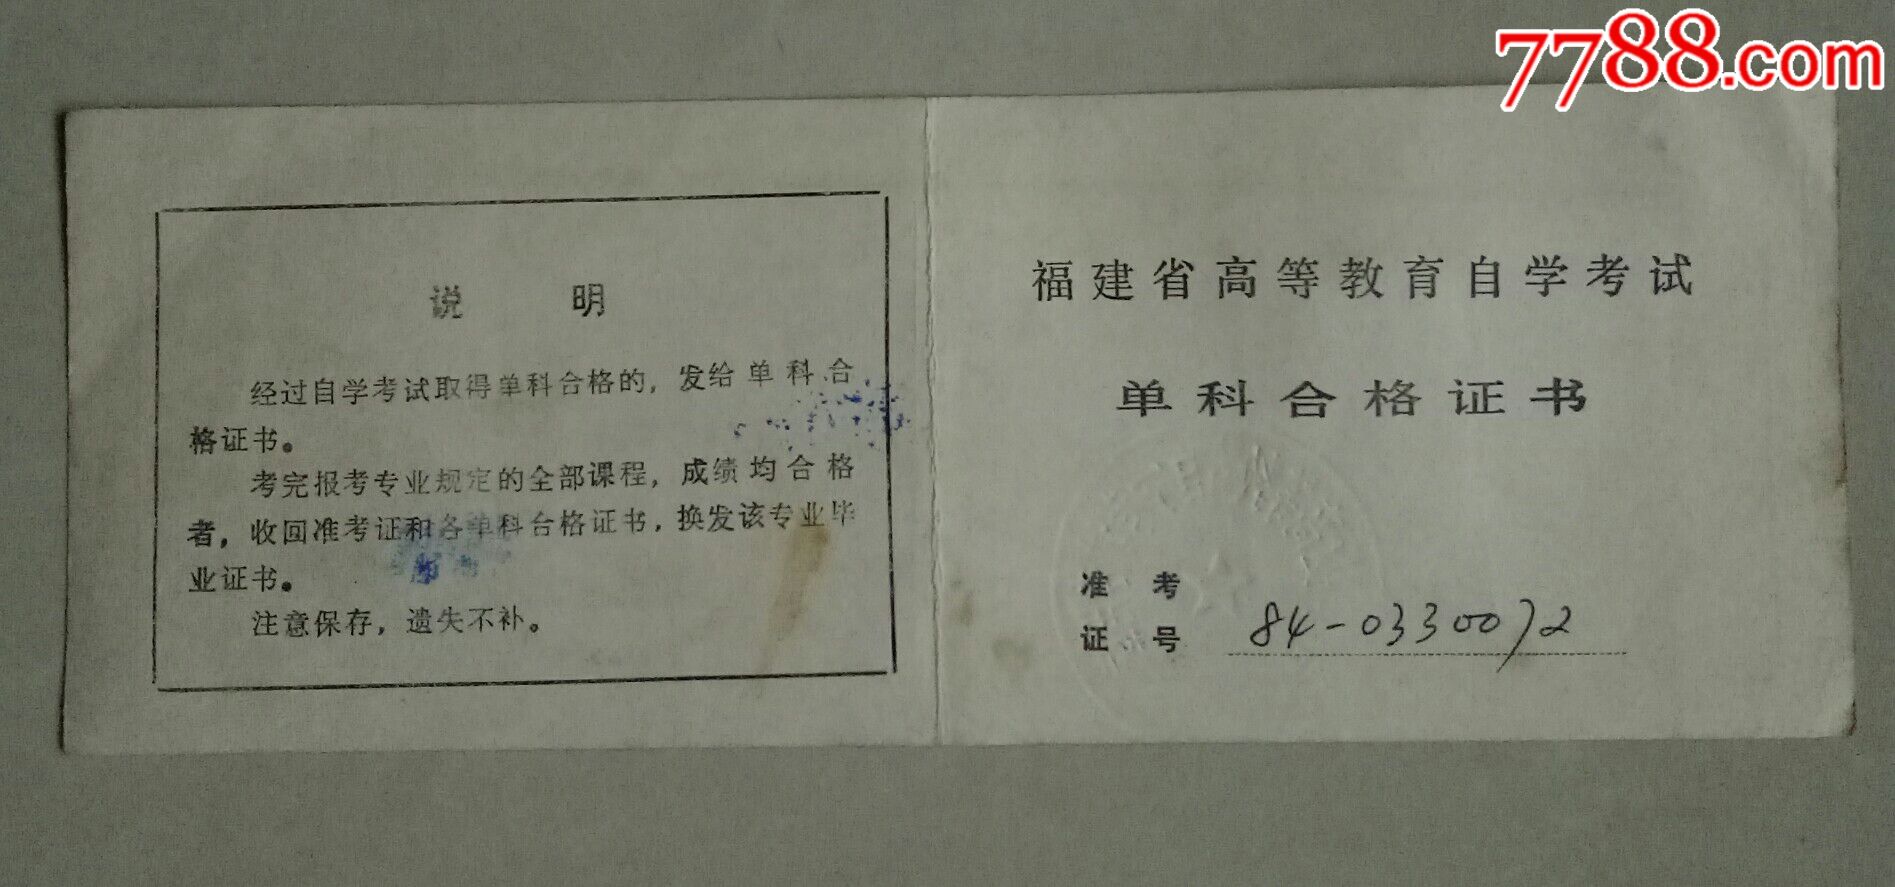 7788.com
说 明
经过自学考试取得单科合格的，发给单科合
格证书。
考完报考专业规定的全部课程，成绩均合格
者，收回准考证和各单科合格证书，换发该专业毕
业证书。
注意保存，遗失不补。
福建省高等教育自学考试
单科合格证书
准考
证号 84-0330072